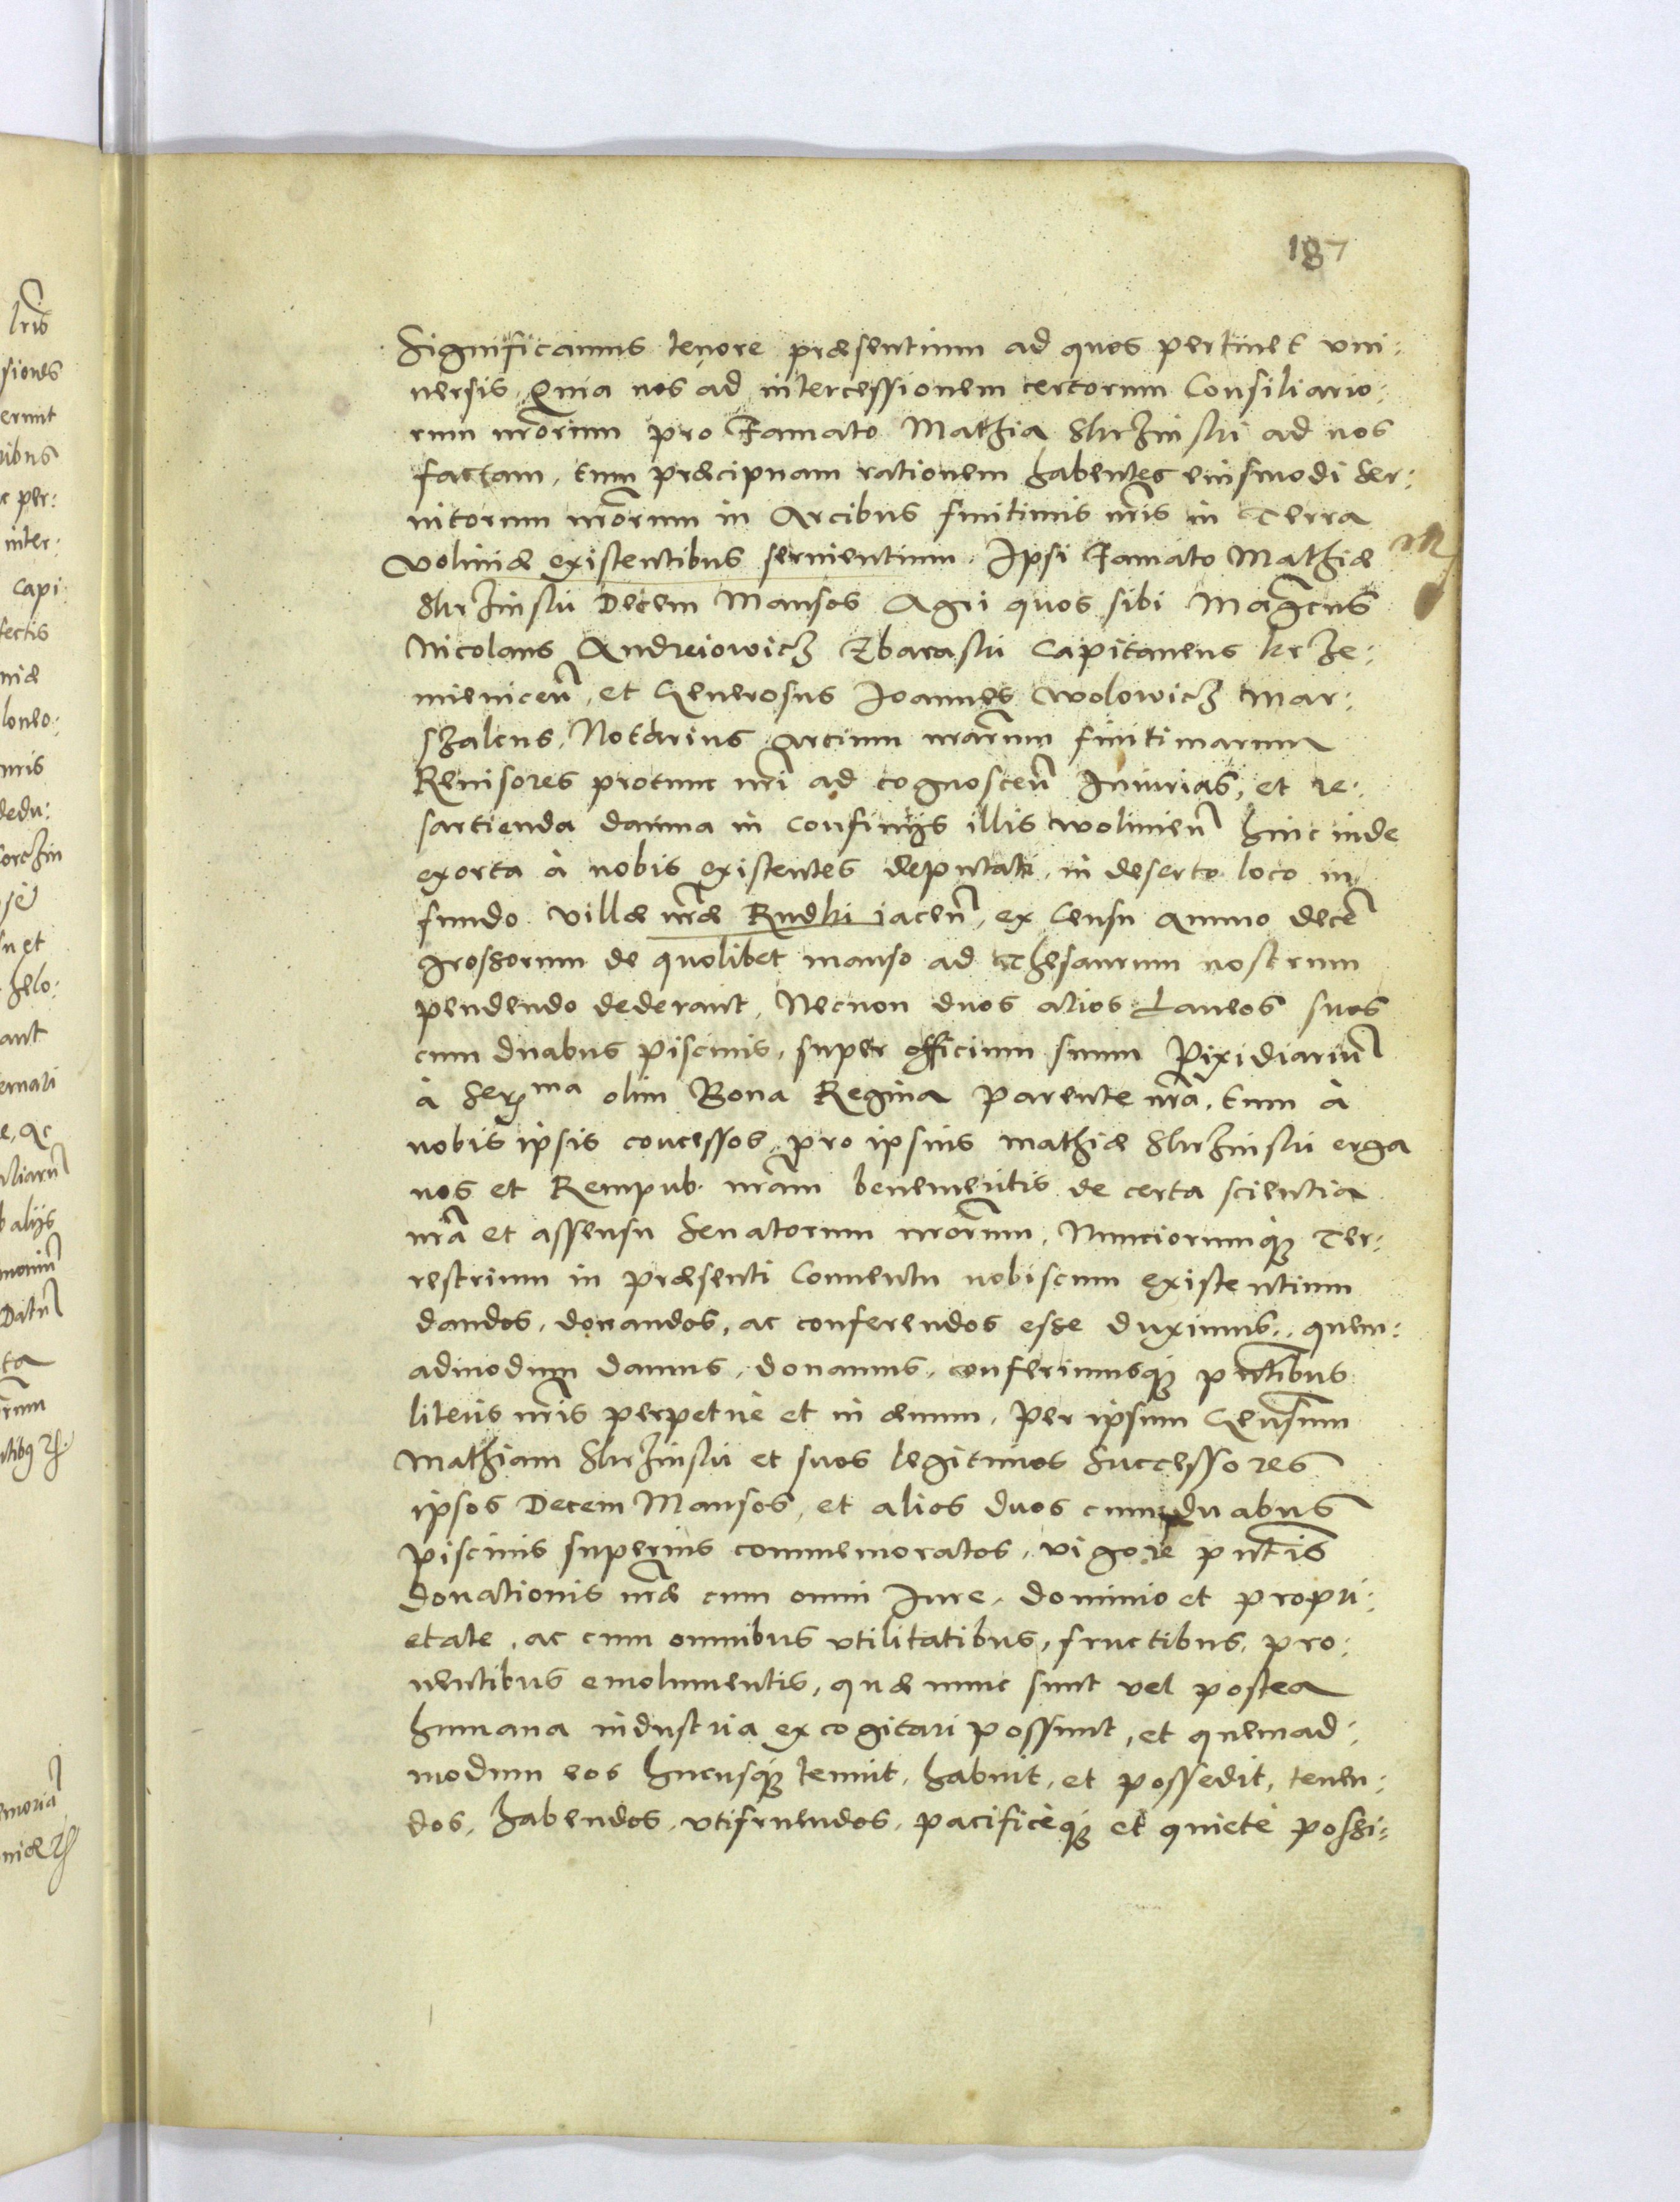 187
Significamus tenore præsentium ad quos pertinet vni:
uersis, Quia nos ad intercessionem certorum Consiliario:
rum nrorum pro Famato Mathia Skrzinski ad nos
factam, tum præcipuam rationem habentes eiusmodi ser:
uitorum nrorum in Arcibus finitimis nris in Terra
Voliniæ existentibus seruientium. Ipsi Famato Mathiæ
Skrzinski Decem Mansos Agri quos sibi Magcus
Nicolaus Andreiowicz Zbaraski Capitaneus krze:
mienicen, et Generosus Ioannes Wolowicz Mar:
szalcus, Notarius Arcium nrarum finitimarum
Reuisores protunc nri ad cognoscen Iniurias, et re:
sartienda damna in confinijs illis Wolinien hinc inde
exorta à nobis existentes deputati, in deserto loco in
fundo villæ nræ Rudki iacen, ex Censu annuo decē
grossorum de quolibet manso ad Thesaurum nostrum
pendendo dederant, Necnon duos alios Laneos suos
cum duabus piscinis, super officium suum Pixidiariū
à Serma olim Bona Regina Parente nra, tum à
nobis ipsis concessos, pro ipsius Mathiæ Skrzinski erga
nos et Rempub. nram benemeritis de certa scientia
nra et assensu Senatorum nrorum, Nunciorumq̃ Ter:
restrium in præsenti Conuentu nobiscum existentium
dandos, donandos, ac conferendos esse duximus, quem:
admodum damus, donamus, conferimusq̃ pntibus
literis nris perpetuè et in æuum, Per ipsum Gensum
Mathiam Skrzinski et suos legitimos Successores
ipsos Decem Mansos, et alios duos cum duabus
piscinis superius commemoratos, vigore pntis
donationis nræ cum omni Iure, dominio et propri:
etate, ac cum omnibus vtilitatibus, fructibus, pro:
uentibus emolumentis, quæ nunc sunt vel postea
humana industria excogitari possunt, et quemad:
modum eos hucusq̃ tenuit, habuit, et possedit, tenen:
dos, habendos, vtifruendos, pacificeq̃ et quietè possi: